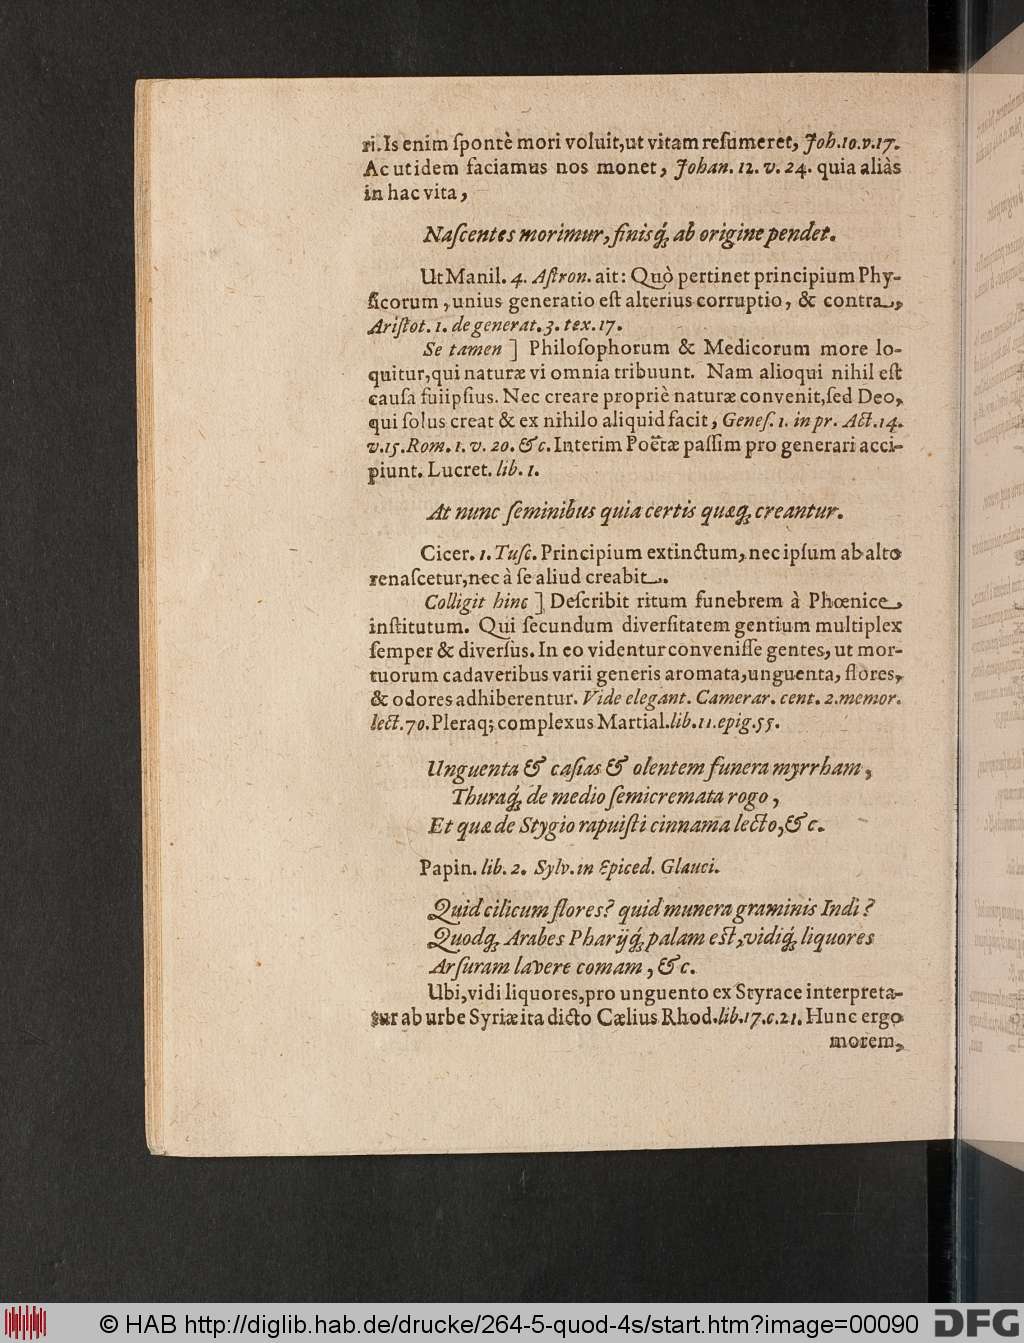 ri. Is enim ſpontè mori voluit, ut vitam reſumeret, Joh. 10. v. 17.
Ac ut idem faciamus nos monet, Johan. 12. v. 24. quia aliàs
in hac vita,
Naſcentes morimur, finisq́; ab origine pendet.
Ut Manil. 4. Aſtron. ait: Quò pertinet principium Phy-
ſicorum, unius generatio eſt alterius corruptio, & contra,
Ariſtot. 1. de generat. 3. tex. 17.
Se tamen ] Philoſophorum & Medicorum more lo-
quitur, qui naturæ vi omnia tribuunt. Nam alioqui nihil eſt
cauſa ſui ipſius. Nec creare propriè naturæ convenit, ſed Deo,
qui ſolus creat & ex nihilo aliquid facit, Geneſ. 1. in pr. Act. 14.
v. 15. Rom. 1. v. 20. &c. Interim Poëtæ paſſim pro generari acci-
piunt. Lucret. lib. 1.
At nunc ſeminibus quia certis quæq; creantur.
Cicer. 1. Tuſc. Principium extinctum, nec ipſum ab alto
renaſcetur, nec à ſe aliud creabit.
Colligit hinc ] Deſcribit ritum funebrem à Phœnice,
inſtitutum. Qui ſecundum diverſitatem gentium multiplex
ſemper & diverſus. In eo videntur conveniſſe gentes, ut mor-
tuorum cadaveribus varii generis aromata, unguenta, flores,
& odores adhiberentur. Vide elegant. Camerar. cent. 2. memor.
lect. 70. Pleraq; complexus Martial. lib. 11. epig. 55.
Unguenta & caſias & olentem funera myrrham,
Thuraq́; de medio ſemicremata rogo,
Et quæ de Stygio rapuiſti cinnama lecto, &c.
Papin. lib. 2. Sylv. in Epiced. Glauci.
Quid cilicum flores? quid munera graminis Indi?
Quodq; Arabes Pharijq́; palam eſt, vidiq́; liquores
Arſuram lavere comam, &c.
Ubi, vidi liquores, pro unguento ex Styrace interpreta-
tur ab urbe Syriæ ita dicto Cælius Rhod. lib. 17. c. 21. Hunc ergo
morem,
© HAB http://diglib.hab.de/drucke/264-5-quod-4s/start.htm?image=00090 DFG